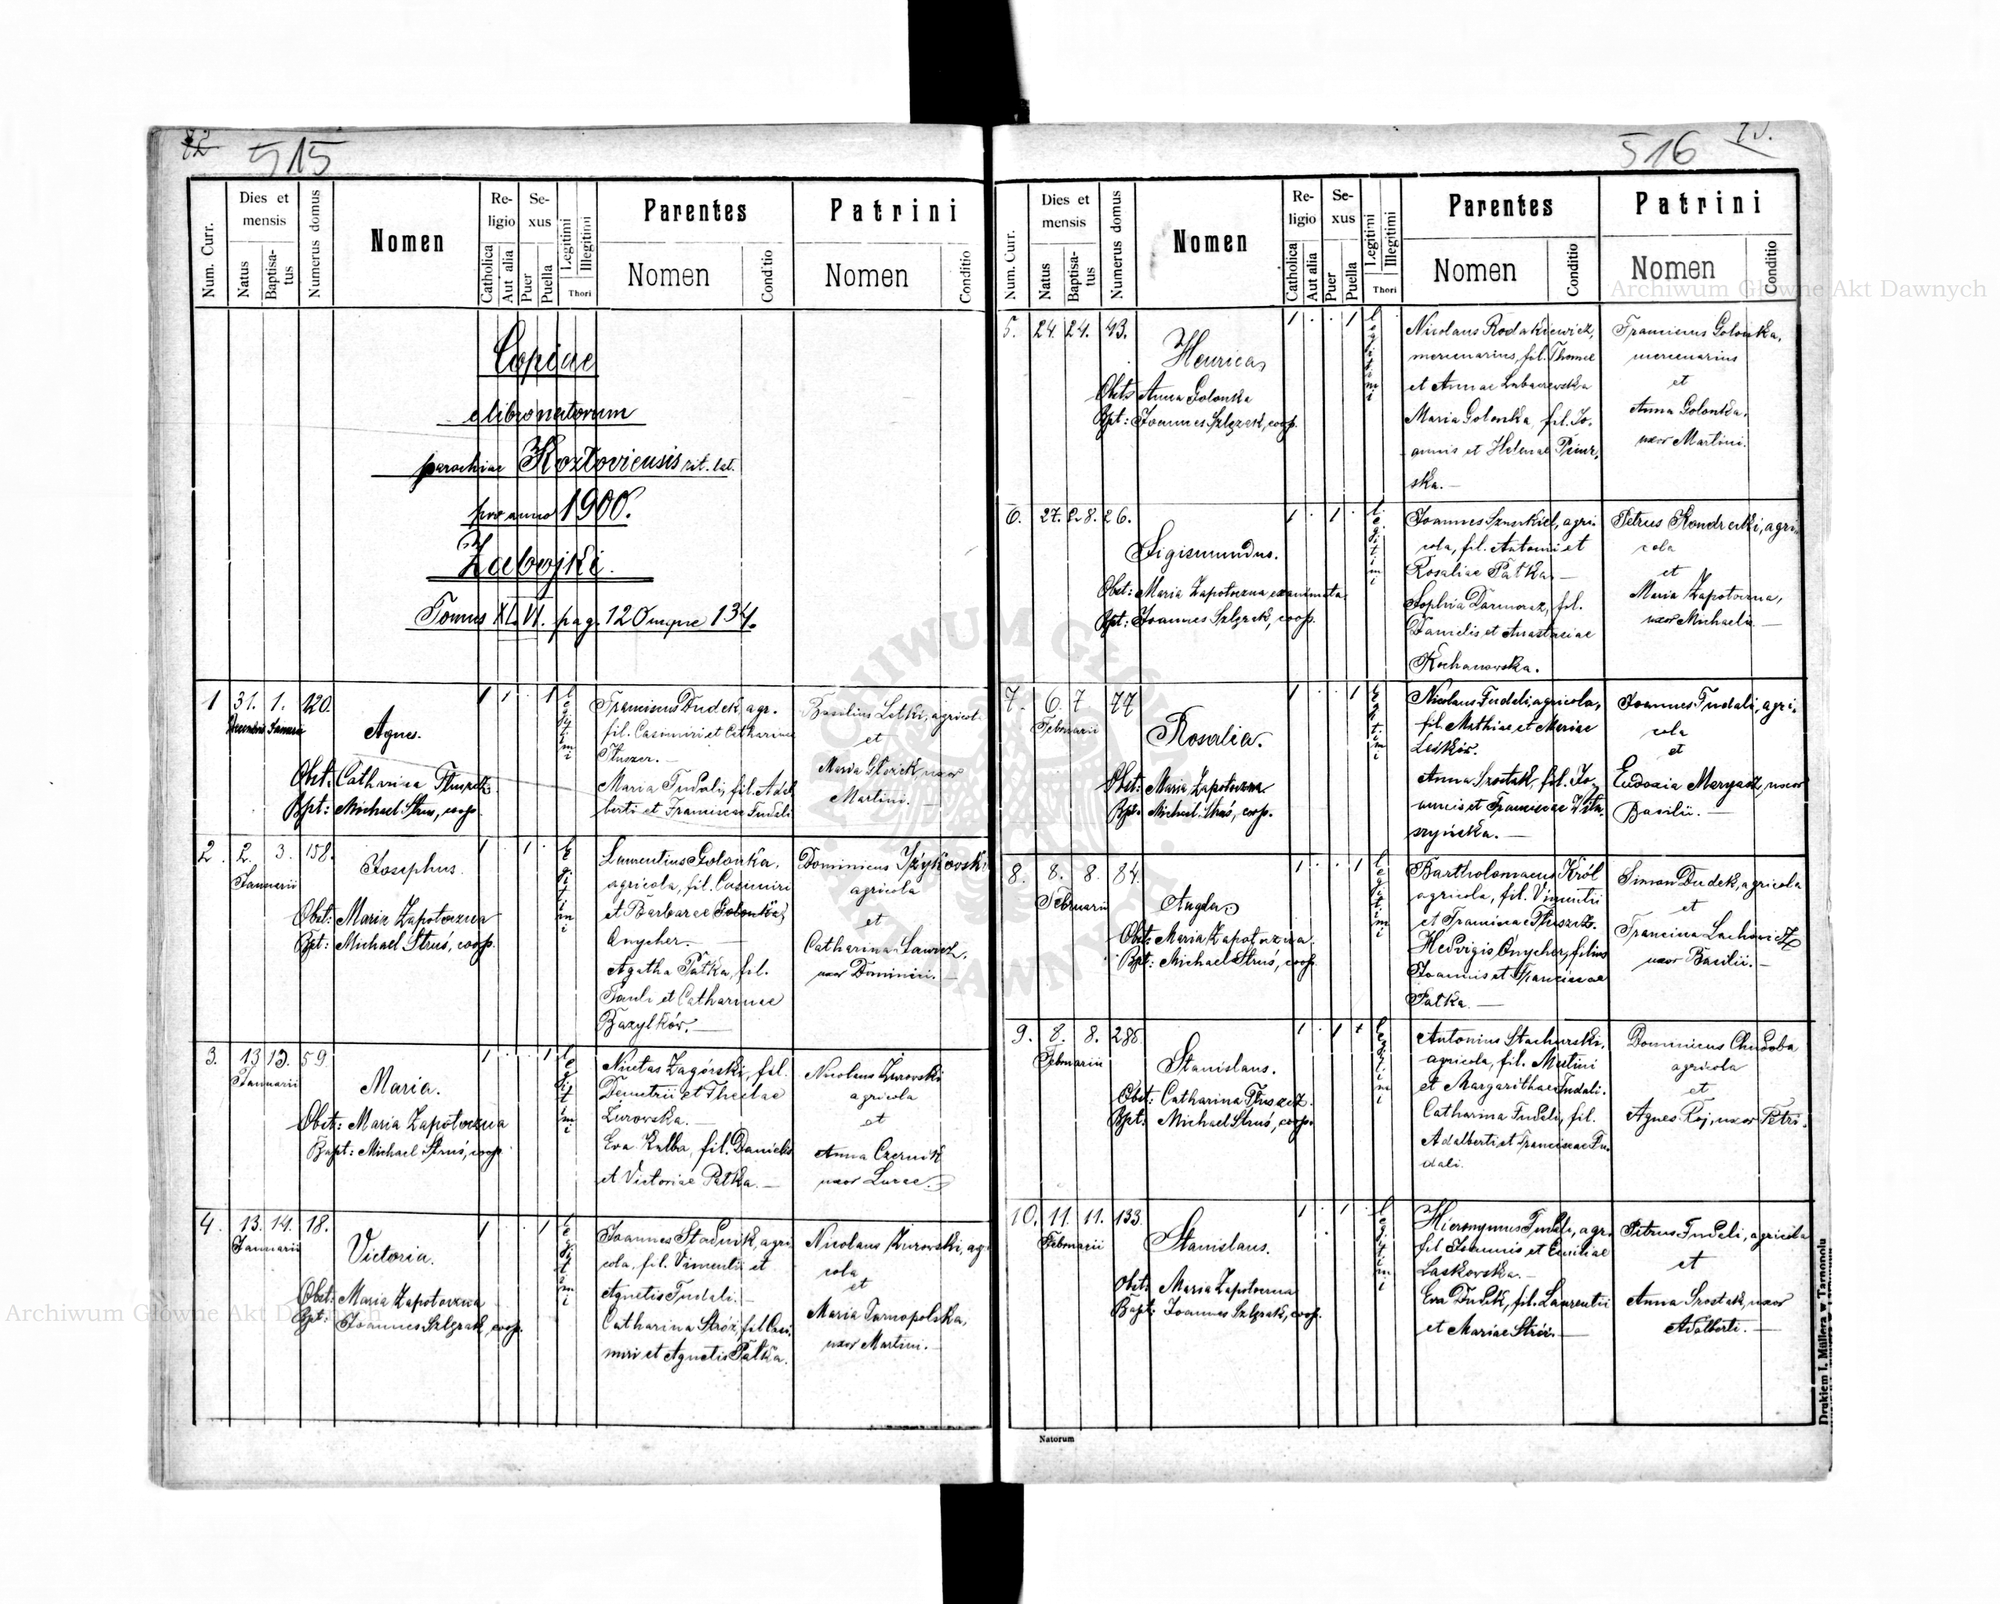 515
Num. Curr.
Dies et mensis
Natus
Baptisatus
Numerus domus
Nomen
Religio
Catholica
Aut alia
Sexus
Puer
Puella
Legitimi
Illegitimi
Thori
Parentes
Nomen
Conditio
Patrini
Nomen
Conditio
Copiae
e libro natorum
parochiae Kozłoviensis rit. lat.
pro anno 1900.
Zabojki.
Tomus XL.VI. pag. 120 usque 134.
1 31. 1. 120.
Decembris Januarii
Agnes.
Obst: Catharina
Bpt: Michael Struś, coop.
Franciscus Dudek, agr.
fil. Casimiri et Catharinae
Tłuszcz. —
Maria Fudali, fil. Adal
berti et Franciscae Fudali
Basilius Letki, agricola
et
Maria uxor
Martini. —
2. 2. 3. 158.
Januarii
Josephus.
Obst: Maria Zapotoczna
Bpt: Michael Struś, coop.
Laurentius Golonka,
agricola, fil. Casimiri
et Barbarae Golonka
Onycher. —
Agatha Patka, fil.
Pauli et Catharinae
Bazylków. —
Dominicus
agricola
et
Catharina
uxor Dominici. —
3. 13 13. 59.
Januarii
Maria.
Obst: Maria Zapotoczna
Bapt: Michael Struś, coop.
Nicetas Zagórski, fil.
Demetrii et Theclae
Żurowska. —
Eva Kulba, fil. Danielis
et Victoriae Patka. —
Nicolaus Żurowski
agricola
et
Anna Czernik
uxor Lucae.
4. 13. 14. 18.
Januarii
Victoria.
Obst: Maria Zapotoczna
Bpt: Joannes Szlęzak, coop.
Joannes Stadnik, agri
cola, fil. Vincentii et
Agnetis Fudali. —
Catharina Stróż, fil. Casi
miri et Agnetis Patka.
Nicolaus Żurowski, ag
cola
et
Maria Tarnopolska,
uxor Martini. —
516
Num. Curr.
Dies et mensis
Natus
Baptisatus
Numerus domus
Nomen
Religio
Catholica
Aut alia
Sexus
Puer
Puella
Legitimi
Illegitimi
Thori
Parentes
Nomen
Conditio
Patrini
Nomen
Conditio
5. 24. 24. 43.
Henrica
Obst: Anna Golonka
Bpt: Joannes Szlęzak, coop.
Nicolaus Rodakiewicz,
mercenarius, fil. Thomae
et Annae
Maria Golonka, fil. Jo-
annis et Helenae
ska. —
Franciscus Golonka,
mercenarius
et
Anna Golonka,
uxor Martini.
6. 27. 28. 26.
Sigismundus.
Obst: Maria Zapotoczna examinata
Bpt: Joannes Szlęzak, coop.
Joannes agri
cola, fil. Antonii et
Rosaliae Patka. —
Sophia Darmoraz, fil.
Danielis et Anastasiae
Kochanowska.
Petrus agri
cola
et
Maria Zapotoczna,
uxor Michaelis. —
7. 6. 7 77
Februarii
Rosalia.
Obst: Maria Zapotoczna
Bpt: Michael Struś, coop.
Nicolaus Fudali, agricola,
fil. Mathiae et Mariae
Leśków.
Anna Szostak, fil. Jo
annis et Franciscae
szyńska. —
Joannes Fudali, agri-
cola
et
Eudoxia uxor
Basilii. —
8. 8. 8. 84.
Februarii
Angela
Obst: Maria Zapotoczna.
Bpt: Michael Struś, coop.
Bartholomaeus Król
agricola, fil. Vincentii
et Franciscae Tłuszcz.
Hedvigis Onycher, filia
Joannis et Franciscae
Patka. —
Simon Dudek, agricola
et
Francisca Lachowicz
uxor Basilii. —
9. 8. 8. 286.
Februarii
Stanislaus.
Obst: Catharina Tłuszcz.
Bpt: Michael Struś, coop.
Antonius Stachurski,
agricola, fil. Martini
et Margarithae Fudali.
Catharina Fudali, fil.
Adalberti et Franciscae Fu
dali.
Dominicus Chudoba
agricola
et
Agnes Łoj, uxor Petri.
10. 11. 11. 133.
Februarii
Stanislaus.
Obst: Maria Zapotoczna
Bapt: Joannes Szlęzak, coop.
Hieronymus Fudali, agr.
fil. Joannis et Emiliae
Laskowska. —
Eva Dudek, fil. Laurentii
et Mariae Stróż. —
Petrus Fudali, agricola
et
Anna Szostak, uxor
Adalberti. —
Natorum
Drukiem I. Mullera w Tarnopolu
Archiwum Główne Akt Dawnych
Archiwum Główne Akt Dawnych